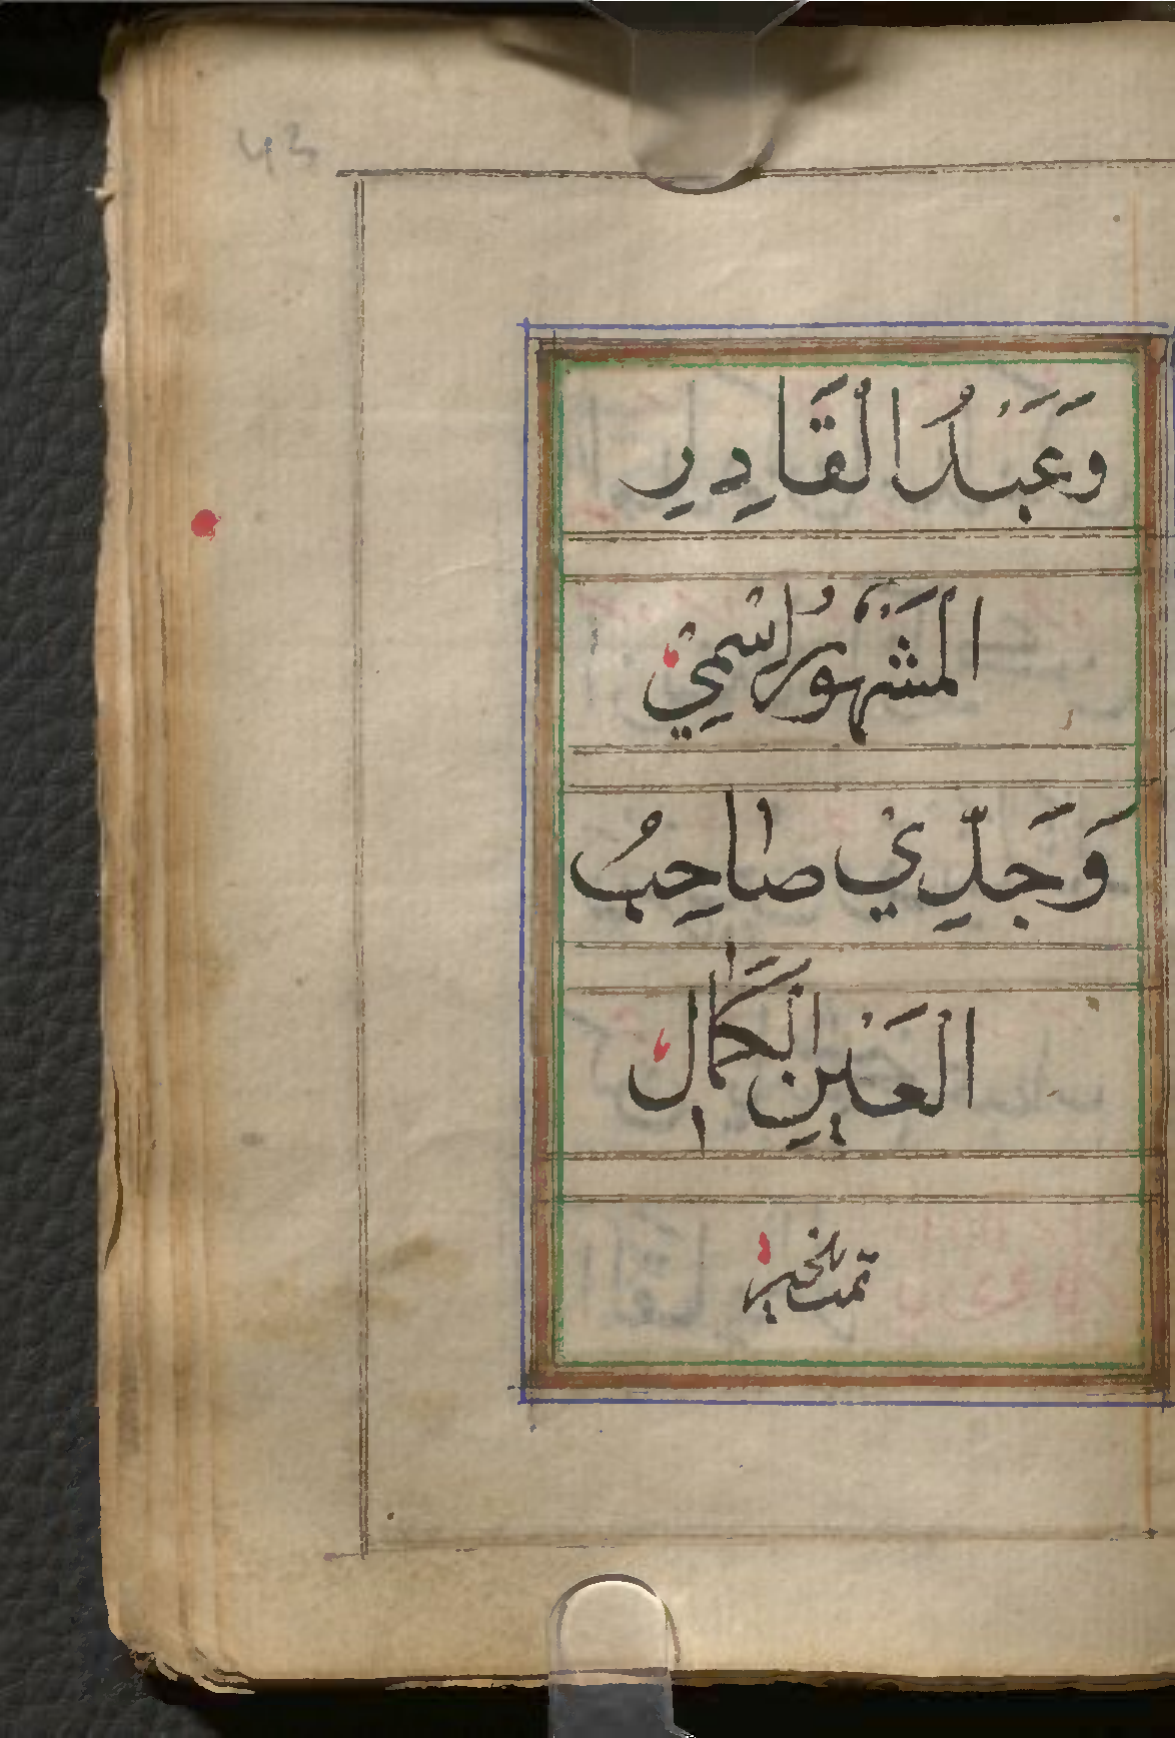 43
وَعَبْدُ الْقَادِرِ
الْمَشْهُورُ اسْمِيْ
وَجَدِّيْ صَاحِبُ
الْعَيْنِ الْكَمَالِ
تمت بلخير